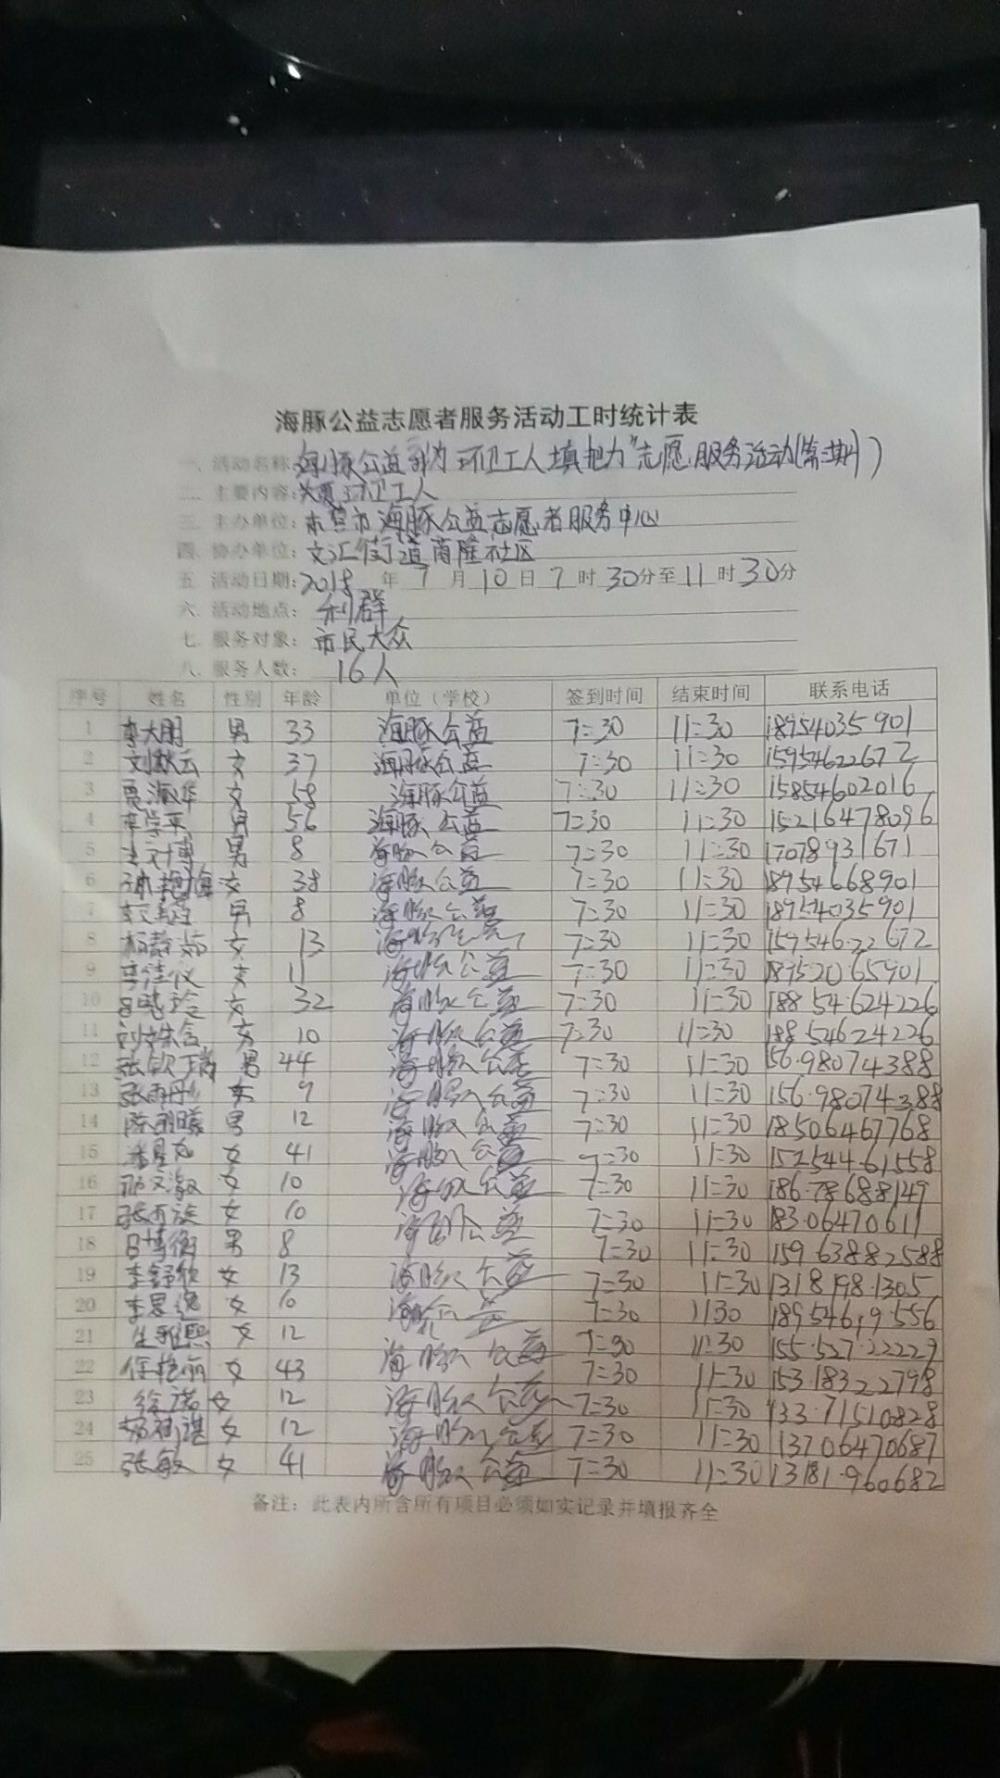 海豚公益志愿者服务活动工时统计表
一. 活动名称:海豚公益"我为环卫工人填把力"志愿服务活动(第二期)
二. 主要内容:关爱环卫工人
三. 主办单位:东营市海豚公益志愿者服务中心
四. 协办单位:文汇街道商隆社区
五. 活动日期:2018年7月10日7时30分至11时30分
六. 活动地点:利群
七. 服务对象:市民大众
八. 服务人数:16人
序号 姓名 性别 年龄 单位(学校) 签到时间 结束时间 联系电话
1 李大朋 男 33 海豚公益 7:30 11:30 18954035901
2 刘献云 女 37 海豚公益 7:30 11:30 15954622672
3 贾海华 女 58 海豚公益 7:30 11:30 15854602016
4 李学平 男 56 海豚公益 7:30 11:30 15216478096
5 男 8 海豚公益 7:30 11:30 17078931671
6 女 38 海豚公益 7:30 11:30 18954668901
7 男 8 海豚公益 7:30 11:30 18954035901
8 女 13 海豚公益 7:30 11:30 15954622672
9 李佳仪 女 11 海豚公益 7:30 11:30 18952065901
10 女 32 海豚公益 7:30 11:30 18854624226
11 女 10 海豚公益 7:30 11:30 18852624226
12 张钦瑞 男 44 海豚公益 7:30 11:30 156.98074388
13 张雨丹 女 9 海豚公益 7:30 11:30 156.98074388
14 男 12 海豚公益 7:30 11:30 18506467768
15 女 41 海豚公益 7:30 11:30 152544.61558
16 女 10 海豚公益 7:30 11:30 186.78688149
17 女 10 海豚公益 7:30 11:30 183.06470611
18 吕博衡 男 8 海豚公益 7:30 11:30 159.63882588
19 李舒欣 女 13 海豚公益 7:30 11:30 1318198.1305
20 李昱逸 女 10 海豚公益 7:30 1130 189546,9.556
21 生雅熙 女 12 海豚公益 7:30 11:30 155.527.22229
22 任艳丽 女 43 海豚公益 7:30 11:30 15318322798
23 徐诺 女 12 海豚公益 7:30 11:30 133.71510828
24 女 12 海豚公益 7:30 11:30 13706470687
25 张敏 女 41 海豚公益 7:30 11:30 13181.960682
备注: 此表内所含所有项目必须如实记录并填报齐全